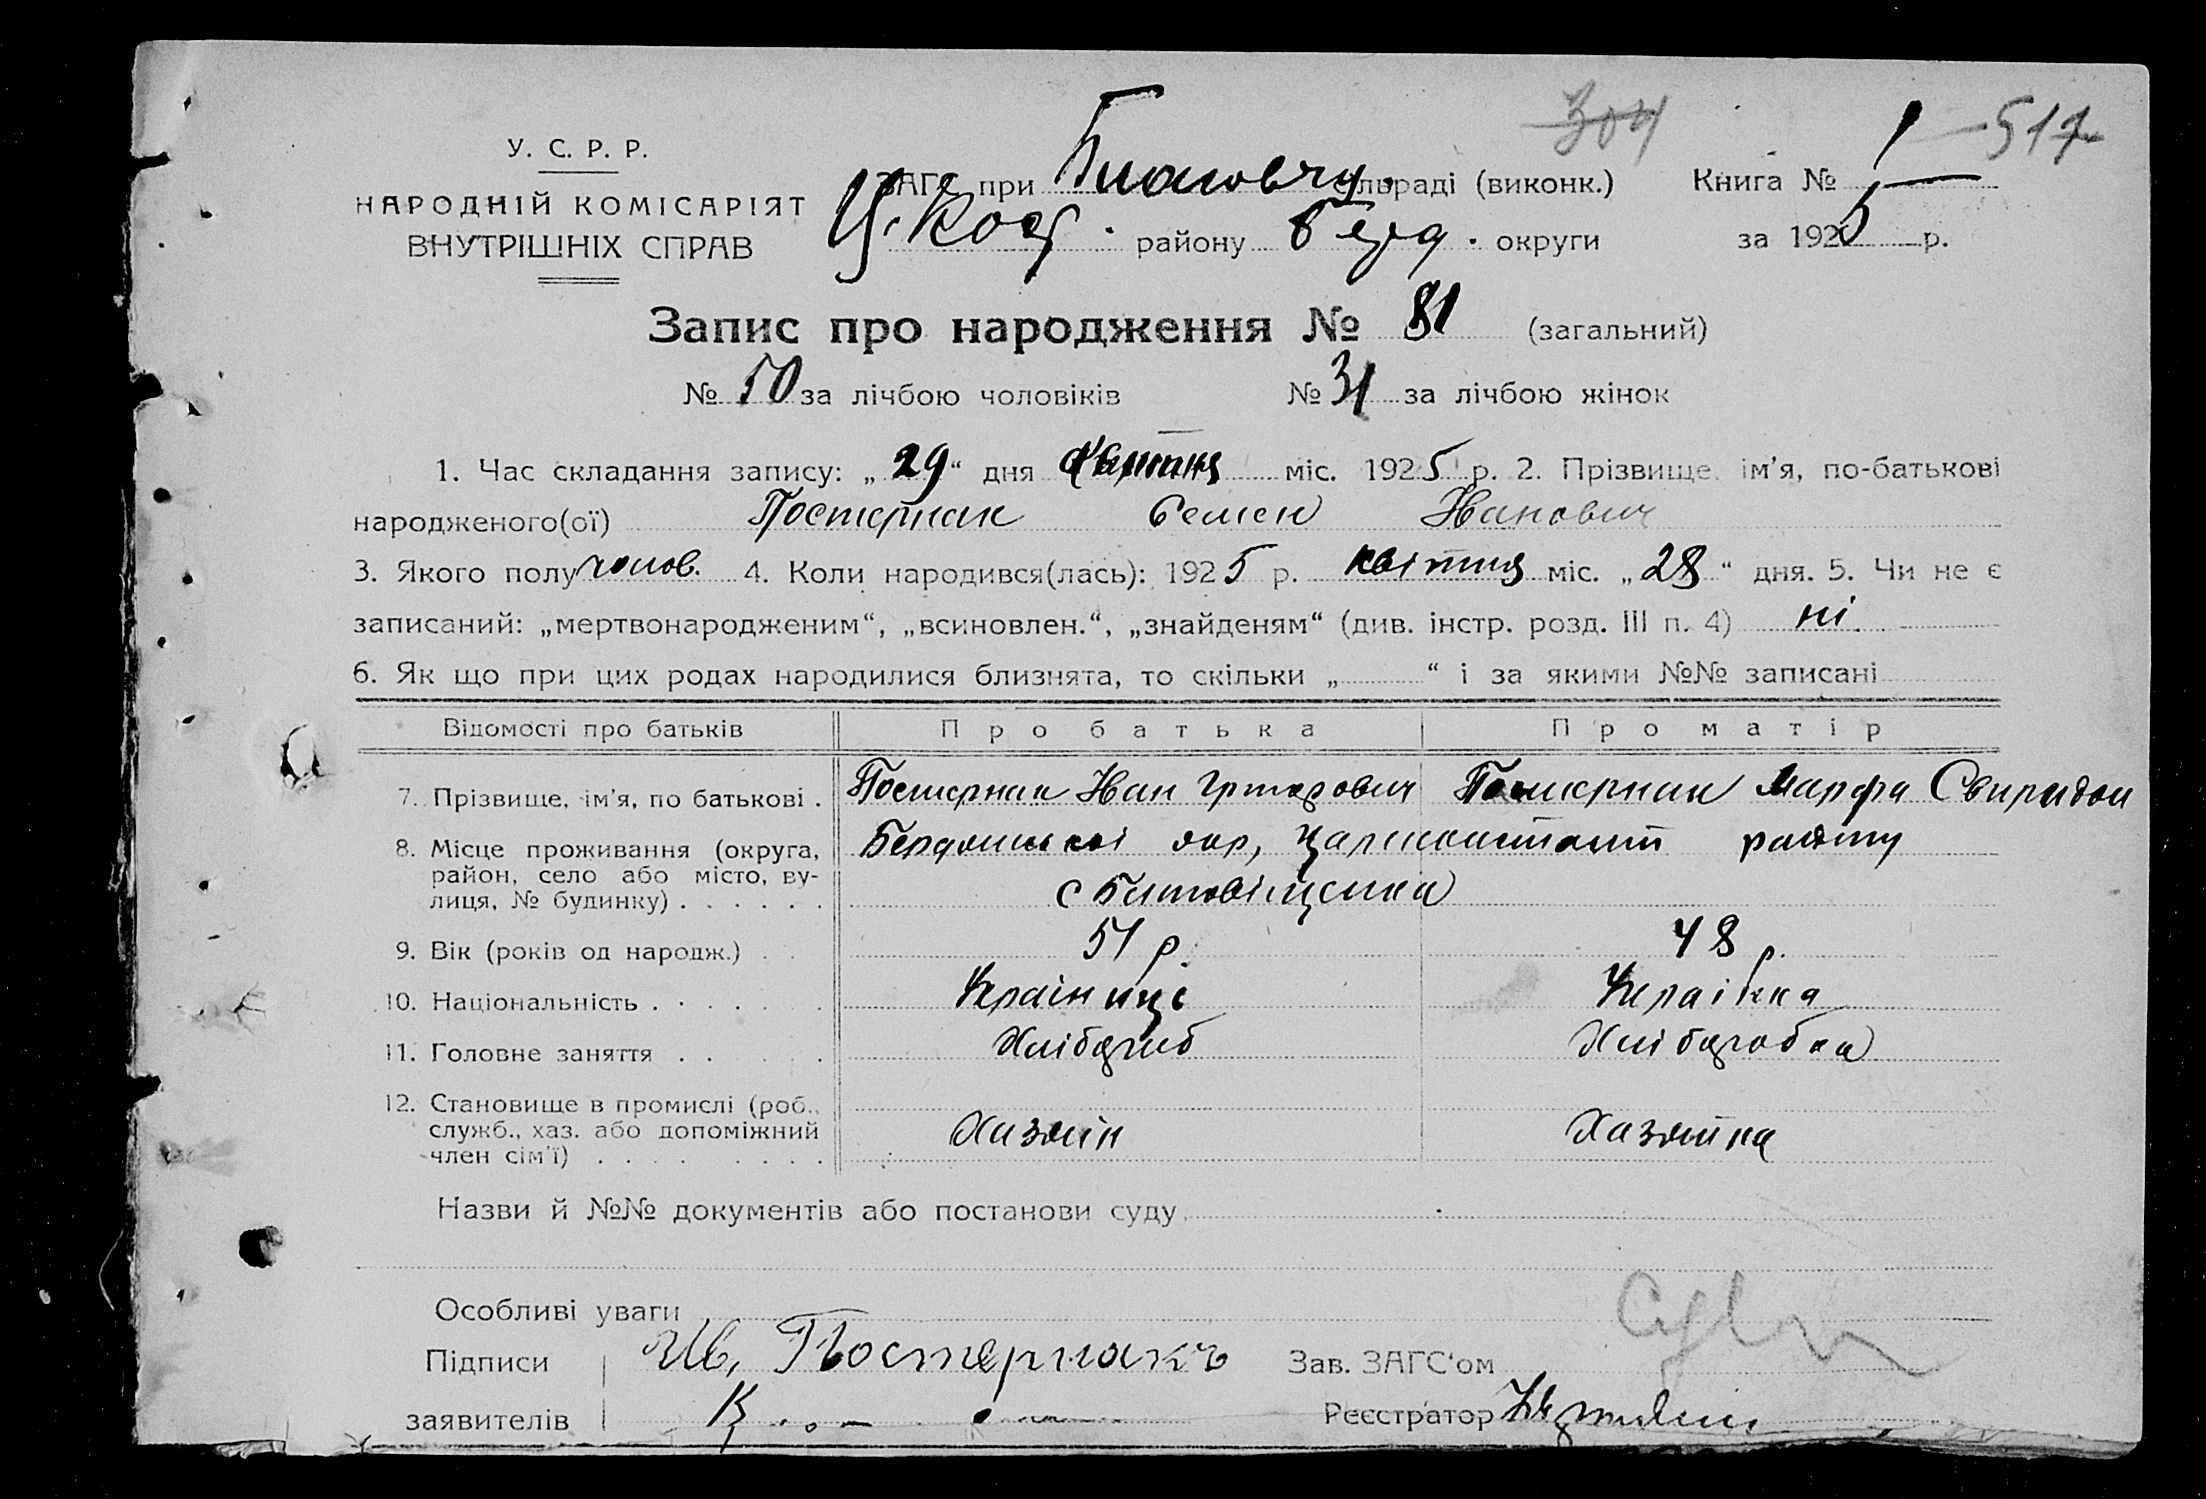 304 517
У. С. Р. Р.
НАРОДНІЙ КОМІСАРІЯТ
ВНУТРІШНІХ СПРАВ
ЗАГС при сельраді (виконк.) Книга № 1
району округи за 1925 р.
Запис про народження № 81 (загальний)
№ 50 за лічбою чоловіків № 31 за лічбою жінок
1. Час складання запису: „29“ дня квітня міс. 1925 р. 2. Прізвище, ім’я, по-батькові
народженого(ої) Постернак Семен Иванович
3. Якого полу чолов. 4. Коли народився(лась): 1925 р. квітня міс. „28“ дня. 5. Чи не є
записаний: „мертвонародженим“, „всиновлен.“, „знайденям“ (див. інстр. розд. III п. 4) ні
6. Як що при цих родах народилися близнята, то скільки „ “ і за якими №№ записані
Відомості про батьків Про батька Про матір
7. Прізвище, ім’я, по батькові . Постернак Иван Григорович Постернак Марфа Свиридон
8. Місце проживання (округа, район, село або місто, вулиця, № будинку) . . . . . . окр, району
с
9. Вік (років од народж.) . . 51 р. 48 р.
10. Національність . . . . . . Українць Українка
11. Головне заняття . . . . . Хлібороб Хліборобка
12. Становище в промислі (роб., служб., хаз. або допоміжний член сім’ї) . . . . . . . . Хазяін Хазяйка
Назви й №№ документів або постанови суду
Особливі уваги
Підписи Ив. Постернакъ Зав. ЗАГС‘ом
заявителів Реєстратор